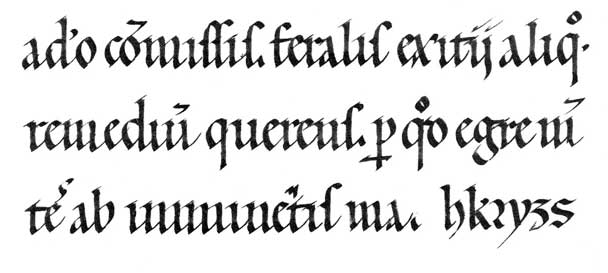 ad’o cōmiſſiſ. feraliſ exitij aliqͦ·
remediū querenſ. ꝑ qͦo egre m̄
te᷑ ab imminētiſ ma. hkꝛyzs